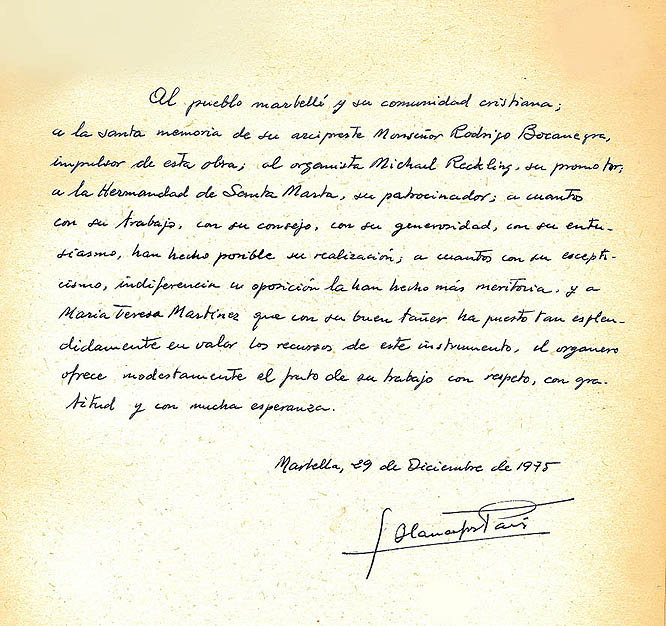 Al pueblo marbellí y su comunidad cristiana;
a la santa memoria de su arcipreste Monseñor Rodrigo Bocanegra,
impulsor de esta obra; al organista Michael Reckling, su promotor;
a la Hermandad de Santa Marta, su patrocinador; a cuantos
con su trabajo, con su consejo, con su generosidad, con su entu-
siasmo, han hecho posible su realización; a cuantos con su escepti-
cismo, indiferencia u oposición la han hecho más meritoria, y a
María Teresa Martínez que con su buen tañer ha puesto tan esplen-
didamente en valor los recursos de este instrumento, el organero
ofrece modestamente el fruto de su trabajo con respeto, con gra-
titud y con mucha esperanza.
Marbella, 29 de Diciembre de 1975